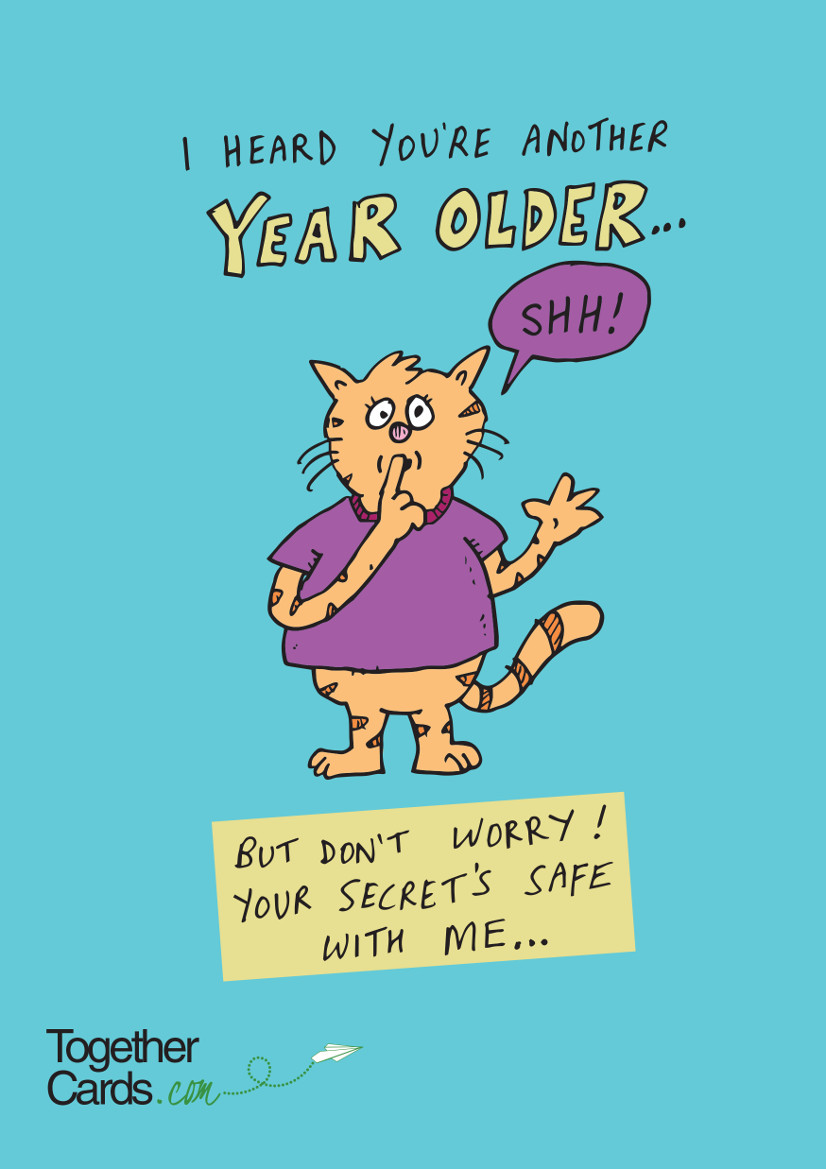 I HEARD YOU'RE ANOTHER
YEAR OLDER...
SHH!
BUT DON'T WORRY!
YOUR SECRET'S SAFE
WITH ME...
Together
Cards.com